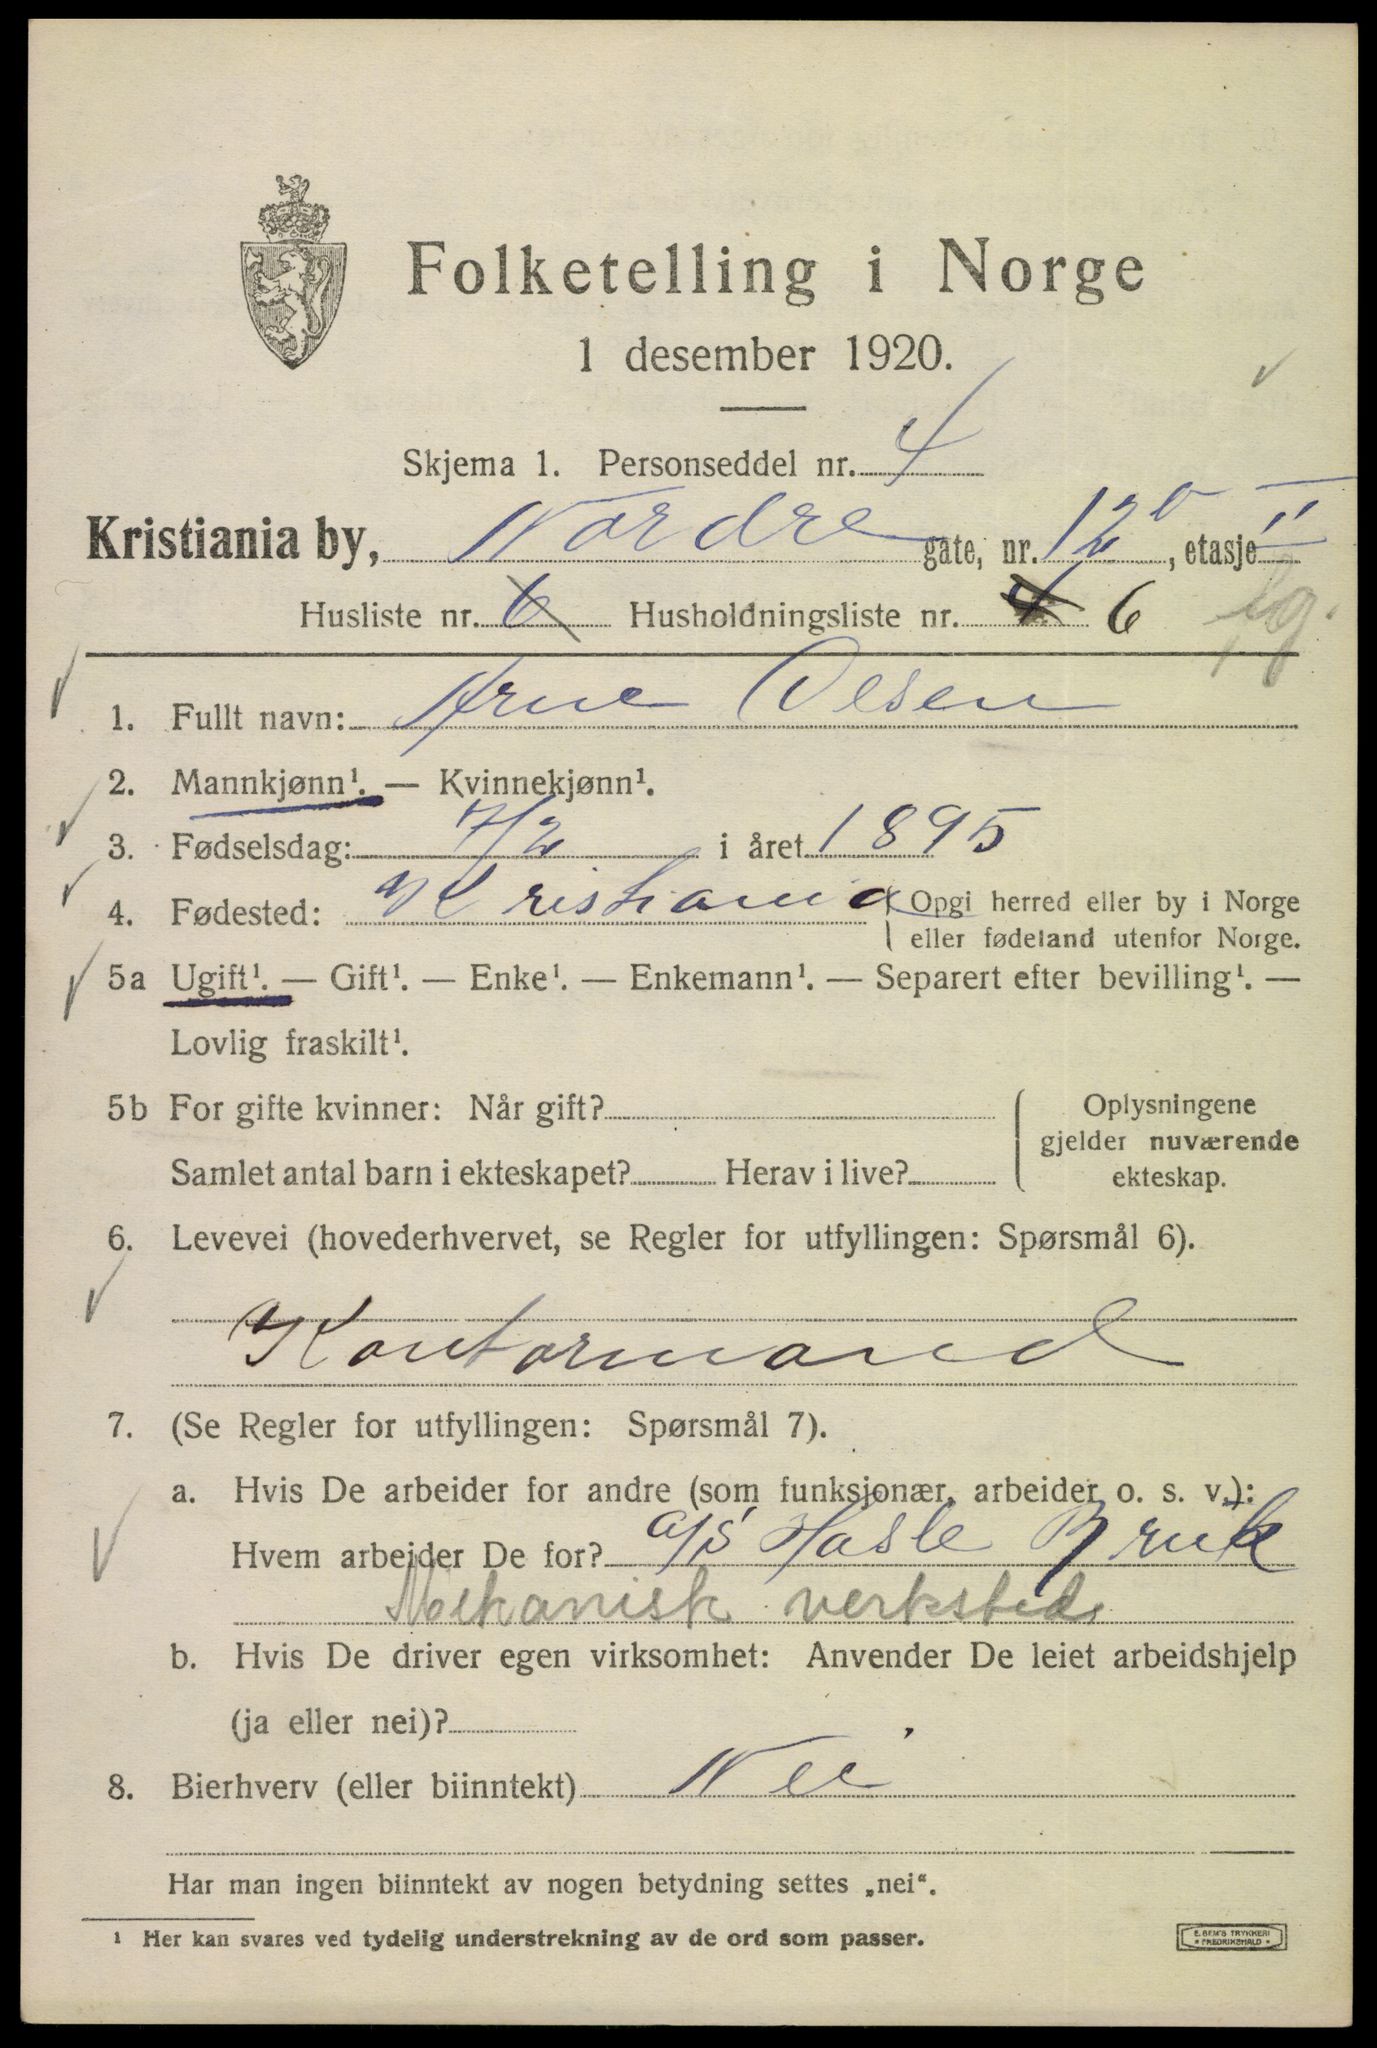 Folketelling i Norge
1 desember 1920.
Skjema 1. Personseddel nr. 4
Kristiania by, Nordre gate, nr. 12b, etasje II
Husliste nr. 6 Husholdningsliste nr. 4 6
1. Fullt navn: Arne Olsen
2. Mannkjønn¹. — Kvinnekjønn¹.
3. Fødselsdag: 7/2 i året 1895
4. Fødested: Kristiania ( Opgi herred eller by i Norge
eller fødeland utenfor Norge.
5a Ugift¹. — Gift¹. — Enke¹. — Enkemann¹. — Separert efter bevilling¹. —
Lovlig fraskilt¹.
5b For gifte kvinner: Når gift? ( Oplysningene
gjelder nuværende
Samlet antal barn i ekteskapet? Herav i live? ekteskap.
6. Levevei (hovederhvervet, se Regler for utfyllingen: Spørsmål 6).
Kontormand
7. (Se Regler for utfyllingen: Spørsmål 7).
a. Hvis De arbeider for andre (som funksjonær, arbeider o. s. v.):
Hvem arbeider De for? a/s Hasle Bruk
Mekanisk verksted.
b. Hvis De driver egen virksomhet: Anvender De leiet arbeidshjelp
(ja eller nei)?
8. Bierhverv (eller biinntekt) Nei
Har man ingen biinntekt av nogen betydning settes „nei“.
¹ Her kan svares ved tydelig understrekning av de ord som passer.
E. SEM'S TRYKKERI
* FREDRIKSHALD *